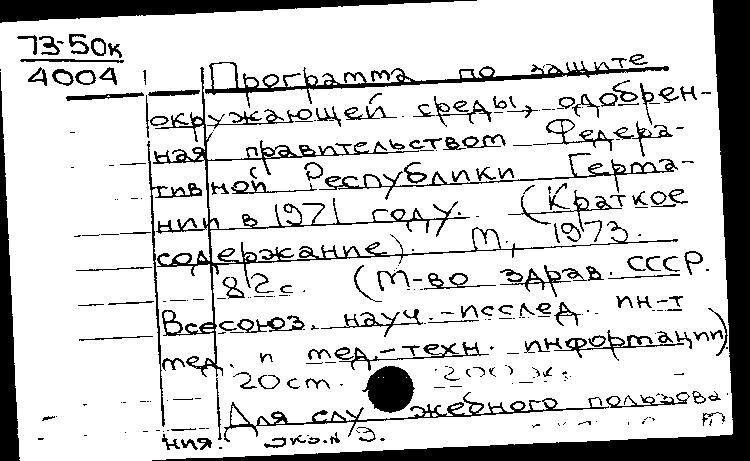 73-50к
4004
Программа по защите
окружающей среды, одобрен-
ная правительством Федера-
тивной Республики Герма-
нии в 1971 году. (Краткое
содержание). М., 1973.
82с. (М-во здрав. СССР.
Всесоюз. науч.-исслед. ин-т
мед. и мед.-техн. информации)
20см. 200 эк.
Для служебного пользова
ния. экз.N